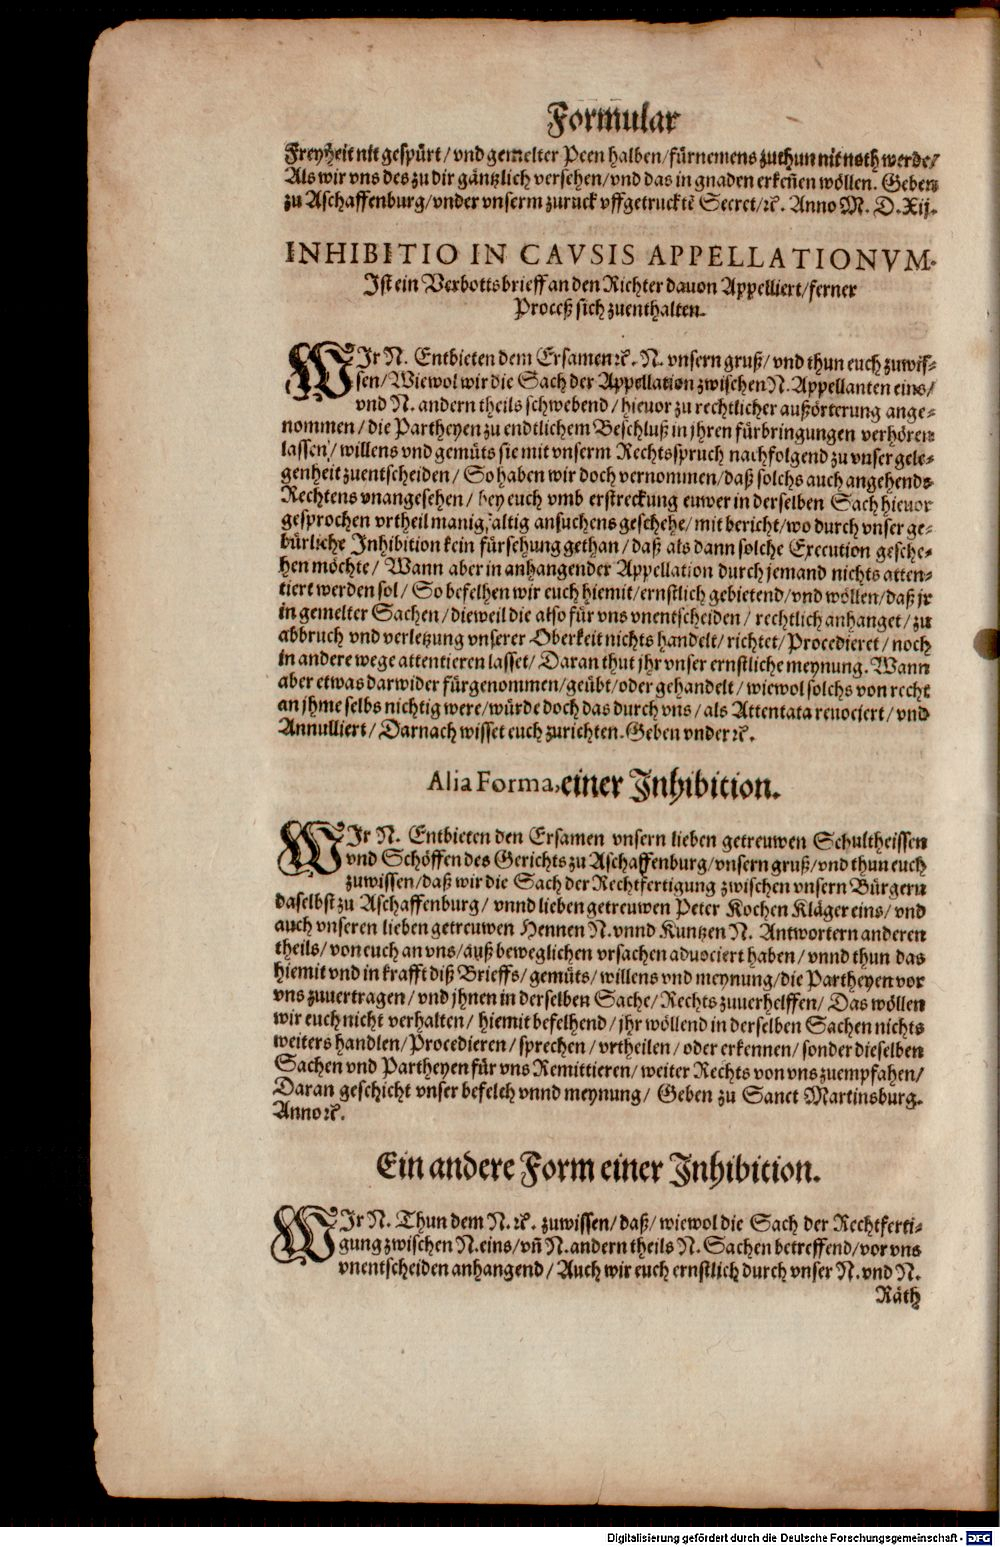 Formular
Freyheit nit gespürt/ vnd gemelter Peen halben/ fürnemens zuthun nit noth werde/
Als wir vns des zu dir gäntzlich versehen/ vnd das in gnaden erkeñen wöllen. Geben
zu Aschaffenburg/ vnder vnserm zuruck vffgetrucktẽ Secret/ ꝛc. Anno M. D. Xij.
INHIBITIO IN CAVSIS APPELLATIONVM.
Ist ein Verbottsbrieff an den Richter dauon Appelliert/ ferner
Proceß sich zuenthalten.
WIr N. Entbieten dem Ersamen ꝛc. N. vnsern gruß/ vnd thun euch zuwis-
sen/ Wiewol wir die Sach der Appellation zwischen N. Appellanten eins/
vnd N. andern theils schwebend/ hieuor zu rechtlicher außörterung ange-
nommen/ die Partheyen zu endtlichem Beschluß in jhren fürbringungen verhören
lassen/ willens vnd gemüts sie mit vnserm Rechtsspruch nachfolgend zu vnser gele-
genheit zuentscheiden/ So haben wir doch vernommen/ daß solchs auch angehends
Rechtens vnangesehen/ bey euch vmb erstreckung euwer in derselben Sach hieuor
gesprochen vrtheil manigfaltig ansuchens geschehe/ mit bericht/ wo durch vnser ge-
bürliche Inhibition kein fürsehung gethan/ daß als dann solche Execution gesche-
hen möchte/ Wann aber in anhangender Appellation durch jemand nichts atten-
tiert werden sol/ So befelhen wir euch hiemit/ ernstlich gebietend/ vnd wöllen/ daß jr
in gemelter Sachen/ dieweil die also für vns vnentscheiden/ rechtlich anhanget/ zu
abbruch vnd verletzung vnserer Oberkeit nichts handelt/ richtet/ Procedieret/ noch
in andere wege attentieren lasset/ Daran thut jhr vnser ernstliche meynung. Wann
aber etwas darwider fürgenommen/ geübt/ oder gehandelt/ wiewol solchs von recht
an jhme selbs nichtig were/ würde doch das durch vns/ als Attentata reuociert/ vnd
Annulliert/ Darnach wisset euch zurichten. Geben vnder ꝛc.
Alia Forma, einer Inhibition.
WIr N. Entbieten den Ersamen vnsern lieben getreuwen Schultheissen
vnd Schöffen des Gerichts zu Aschaffenburg/ vnsern gruß/ vnd thun euch
zuwissen/ daß wir die Sach der Rechtfertigung zwischen vnsern Bürgern
daselbst zu Aschaffenburg/ vnnd lieben getreuwen Peter Kochen Kläger eins/ vnd
auch vnseren lieben getreuwen Hennen N. vnnd Kuntzen N. Antwortern anderen
theils/ von euch an vns/ auß beweglichen vrsachen aduociert haben/ vnnd thun das
hiemit vnd in krafft diß Brieffs/ gemüts/ willens vnd meynung/ die Partheyen vor
vns zuuertragen/ vnd jhnen in derselben Sache/ Rechts zuuerhelffen/ Das wöllen
wir euch nicht verhalten/ hiemit befelhend/ jhr wöllend in derselben Sachen nichts
weiters handlen/ Procedieren/ sprechen/ vrtheilen/ oder erkennen/ sonder dieselben
Sachen vnd Partheyen für vns Remittieren/ weiter Rechts von vns zuempfahen/
Daran geschicht vnser befelch vnnd meynung/ Geben zu Sanct Martinsburg.
Anno ꝛc.
Ein andere Form einer Inhibition.
WIr N. Thun dem N. ꝛc. zuwissen/ daß/ wiewol die Sach der Rechtferti-
gung zwischen N. eins/ vñ N. andern theils N. Sachen betreffend/ vor vns
vnentscheiden anhangend/ Auch wir euch ernstlich durch vnser N. vnd N.
Räth
Digitalisierung gefördert durch die Deutsche Forschungsgemeinschaft - DFG